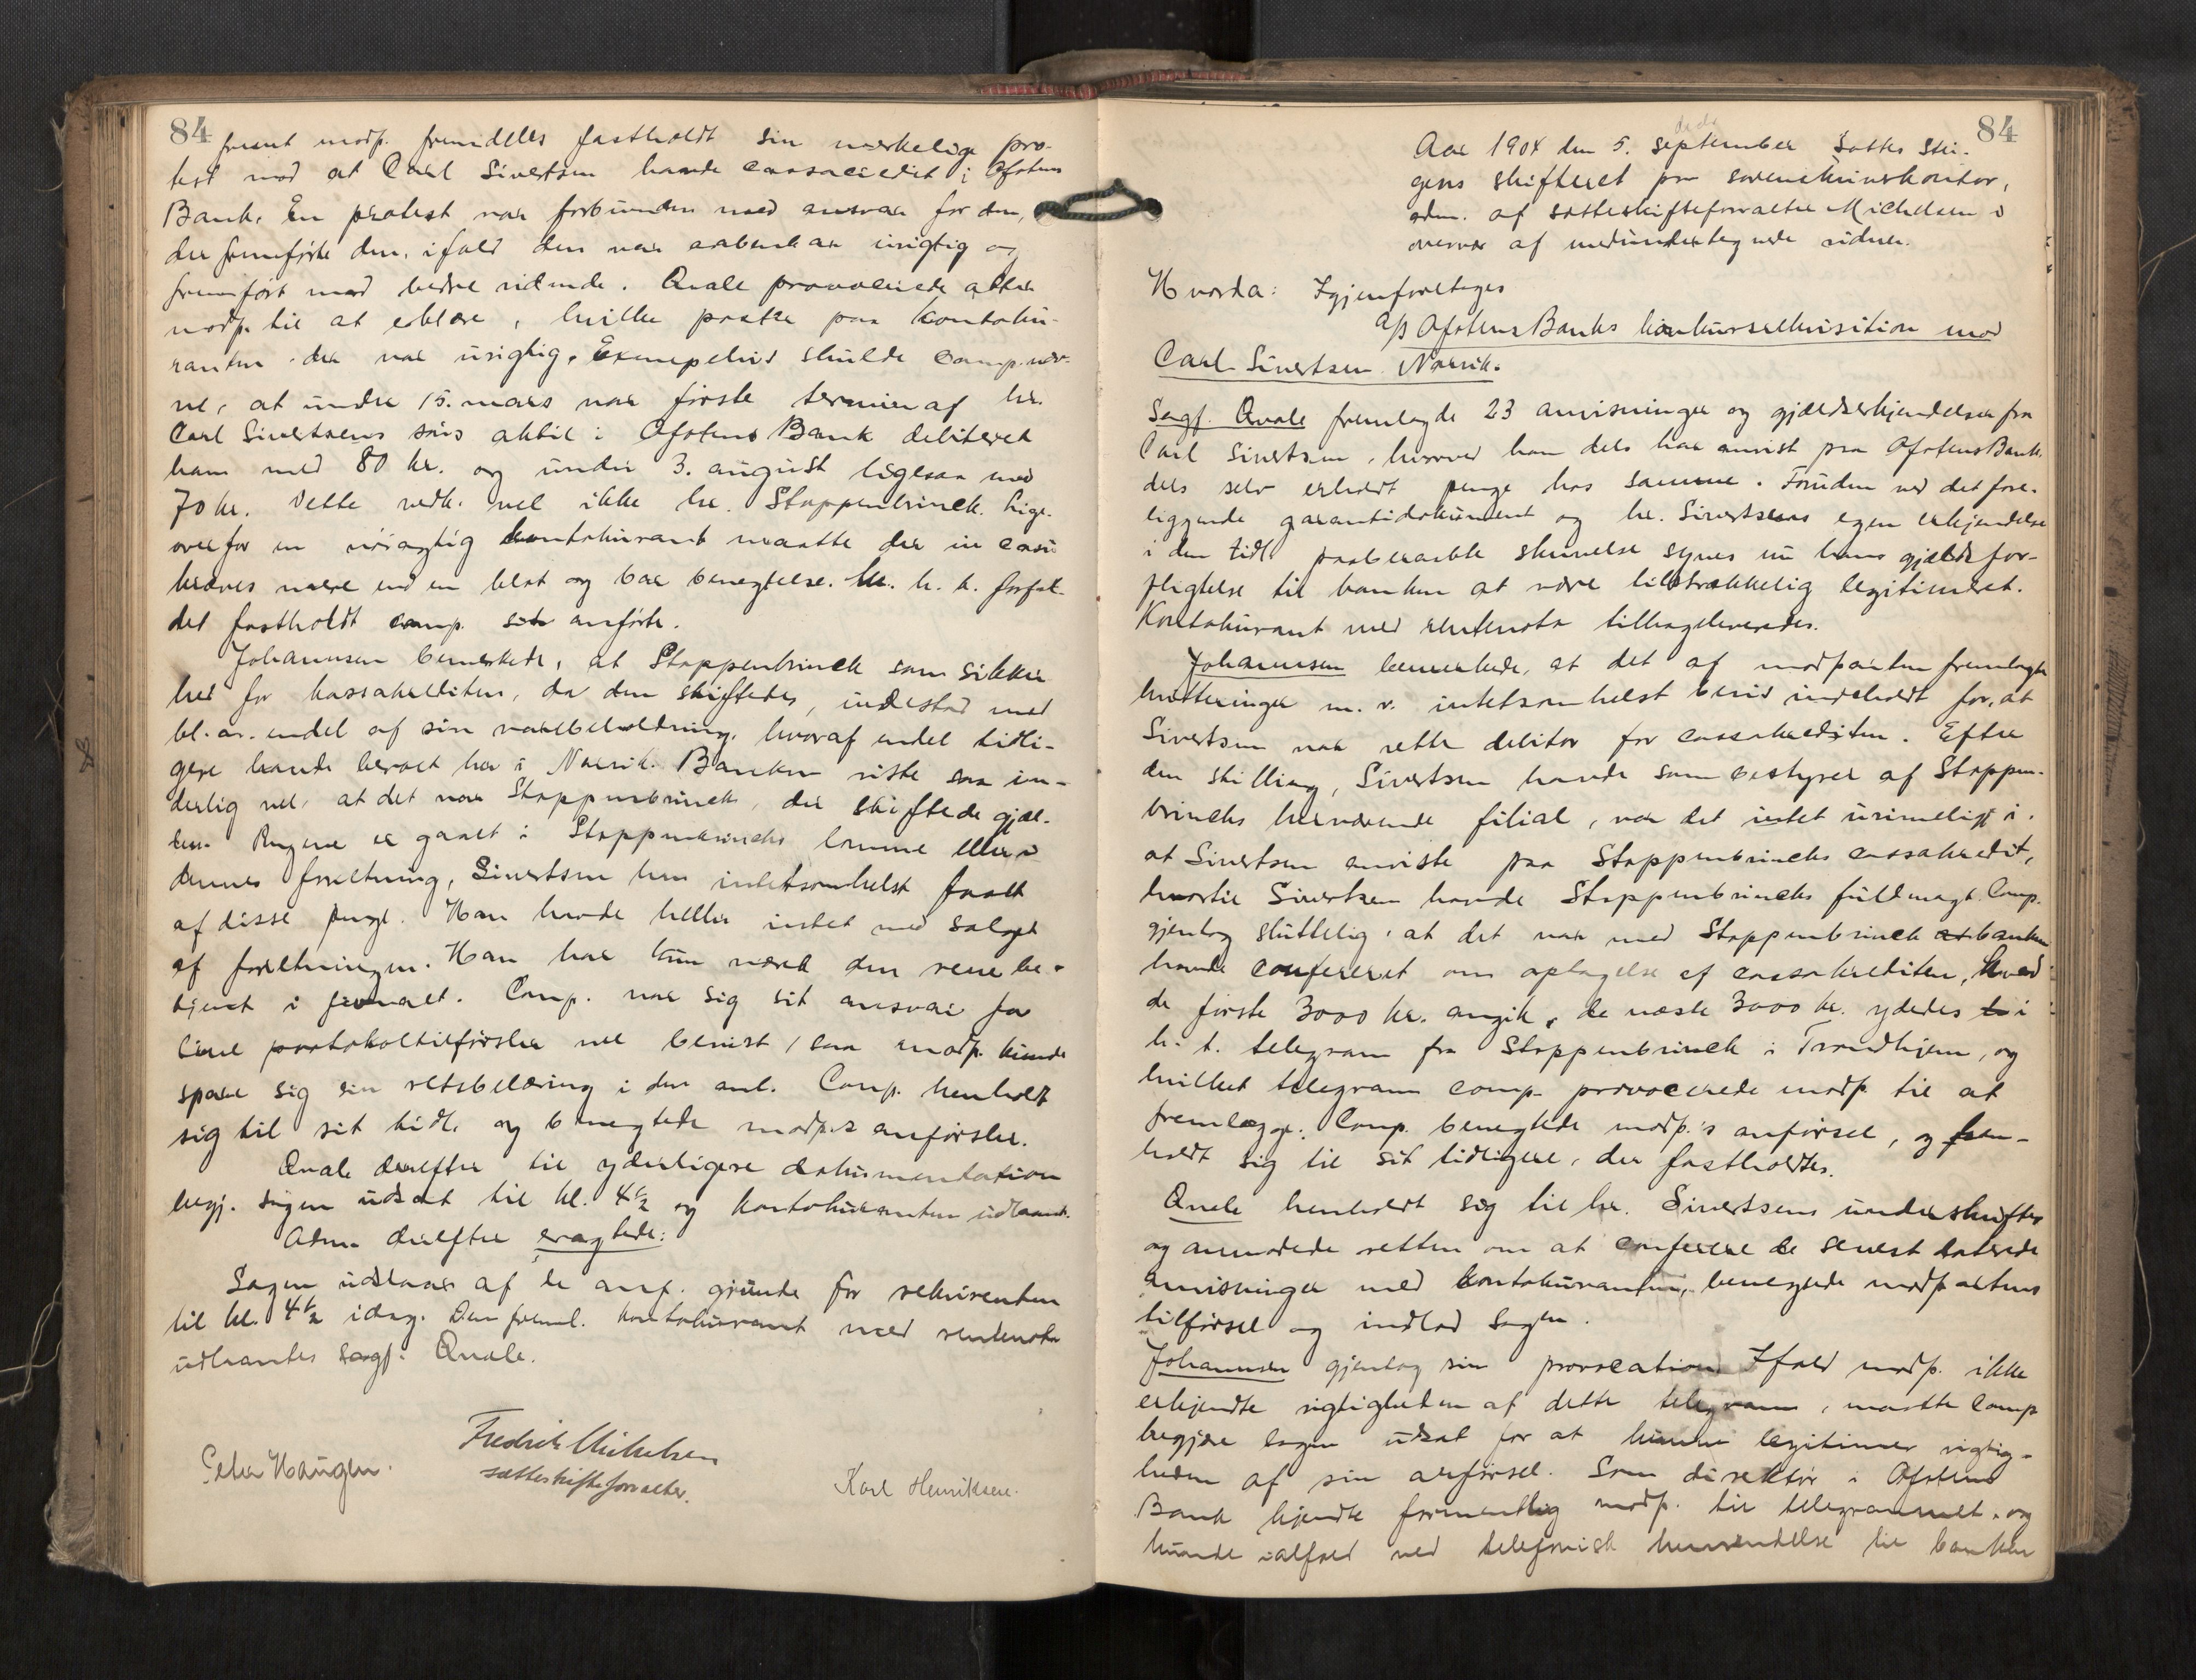 84
fremt modp. fremdeles fastholdt sin merkelige pro-
test mod at Carl Sivertsen havde cassacredit i Ofotens
Bank. En protest var forbunden med ansvar for den,
der fremførte den, ifald den var aabenbar urigtig og
fremført mod bedre vidende. Qvale provocerede atter
modp. til at erklære, hvilke poster paa kontoku-
ranten der var urigtig. Exempelvis skulde comp. næv-
ne, at under 15. mars var første termin af hr.
Carl Sivertsens aktie i Ofotens Bank debiteret
ham med 80 kr. og under 3. august ligesaa med
70 kr. Dette vedk. vel ikke hr. Stoppenbrinck. Lige-
overfor en nøiagtig kontokurant maatte der in casu
kræves mere end en blot og bar benegtelse. h. t. forfal-
det fastholdt comp. sit anførte.
Johannsen bemerkede, at Stoppenbrinck som sikker-
hed for kassakrediten, da den skiftedes, indestod med
bl. a. endel af sin varebeholdning, hvoraf endel tidli-
gere havde beroet her i Narvik. Banken viste saa in-
derlig vel, at det var Stoppenbrinck, der skiftede gjæl-
den. Pengene er gaaet i Stoppenbrincks lomme eller i
dennes forretning, Sivertsen har intetsomhelst faaet
af disse penge. Han havde heller intet med salget
af forretningen. Han har kun været den rene be-
tjent i firmaet. Comp. var sig sit ansvar for
sine protokoltilførsler vel bevist, saa modp. kunde
spare sig sin retsbelæring i den anl. Comp. henholdt
sig til sit tidl. og benegtede modp.s anførsler.
Qvale derefter til yderligere dokumentation
begj. sagen udsat til kl. 4½ og kontokuranten udlaant.
Adm. derefter eragtede:
Sagen udstaar af de anf. grunde for rekvirenten
til kl. 4½ idag. Den freml. kontokurant med rentenota
udlaantes sagf. Qvale.
Peter Haugen.
Fredrik Michelsen
sætteskifteforvalter.
Karl Henriksen.
84
Aar 1904 den 5. september sattes ski-
gens skifteret paa sorenskriverkontor,
adm. af sætteskifteforvalter Michelsen i
overvær af medundertegnede vidner.
Hvorda: Igjenforetages
A/s Ofotens Banks konkursrekvisition mod
Carl Sivertsen Narvik.
Sagf. Qvale fremlagde 23 anvisninger og gjældserkjendelser fra
Carl Sivertsen, hvorved han dels har anvist paa Ofotens Bank
dels selv erholdt penge hos samme. Foruden ved det fore-
liggende garantidokument og hr. Sivertsens egen erkjendelse
i den tidl. paaberaabte skrivelse synes nu hans gjældsfor-
pligtelse til banken at være tilstrækkelig legitimeret.
Kontokurant med rentenota tilbageleveredes.
Johannsen bemerkede, at det af modparten fremlagte
kvitteringer m. v. intetsomhelst bevis indeholdt for, at
Sivertsen var rette debitor for cassakrediten. Efter
den stilling, Sivertsen havde som bestyrer af Stoppen-
brincks herværende filial, var det intet urimeligt i,
at Sivertsen anviste paa Stoppenbrincks cassakredit,
hvortil Sivertsen havde Stoppenbrincks fuldmagt. Comp.
gjentog sluttelig, at det var med Stoppenbrinck at banken
havde confereret om optagelse af cassakrediten, hvad
de første 3000 kr. angik, de næste 3000 kr. ydedes i
h. t. telegram fra Stoppenbrinck i Trondhjem, og
hvilket telegram comp. provocerede modp. til at
fremlægge. Comp. benegtede modp.'s anførsel, og hen-
holdt sig til sit tidligere, der fastholdtes.
Qvale henholdt sig til hr. Sivertsens underskrifter
og anmodede retten om at conferere de senest daterede
anvisninger med kontokuranten, benegtede modpartens
tilførsel og indlod sagen.
Johannsen gjentog sin provocation. Ifald modp. ikke
erkjendte rigtigheden af dette telegram, maatte comp.
begjære sagen udsat for at kunne legitimere rigtig-
heden af sin anførsel. Som direktør i Ofotens
Bank kjendte formentlig modp. til telegrammet, og
kunde ialfald ved telefonisk henvendelse til banken